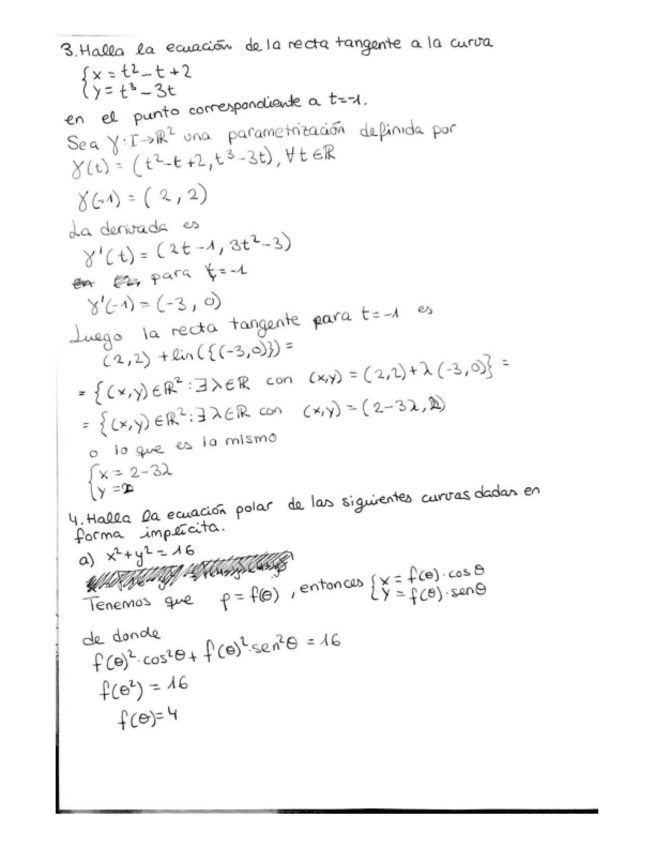 3. Halla la ecuación de la recta tangente a la curva
{x = t² - t + 2
{y = t³ - 3t
en el punto correspondiente a t=-1.
Sea γ: I→ℝ² una parametrización definida por
γ(t) = (t²-t+2, t³-3t), ∀t∈ℝ
γ(-1) = (2, 2)
La derivada es
γ'(t) = (2t-1, 3t²-3)
para t=-1
γ'(-1) = (-3, 0)
Luego la recta tangente para t=-1 es
(2,2) + lin({(-3,0)}) =
= {(x,y)∈ℝ²: ∃λ∈ℝ con (x,y) = (2,2)+λ(-3,0)} =
= {(x,y)∈ℝ²: ∃λ∈ℝ con (x,y) = (2-3λ, 2)
o lo que es lo mismo
{x = 2-3λ
{y = 2
4. Halla la ecuación polar de las siguientes curvas dadas en
forma implícita.
a) x²+y² = 16
Tenemos que ρ = f(θ), entonces {x = f(θ)·cosθ
{y = f(θ)·senθ
de donde
f(θ)²·cos²θ + f(θ)²·sen²θ = 16
f(θ²) = 16
f(θ)=4